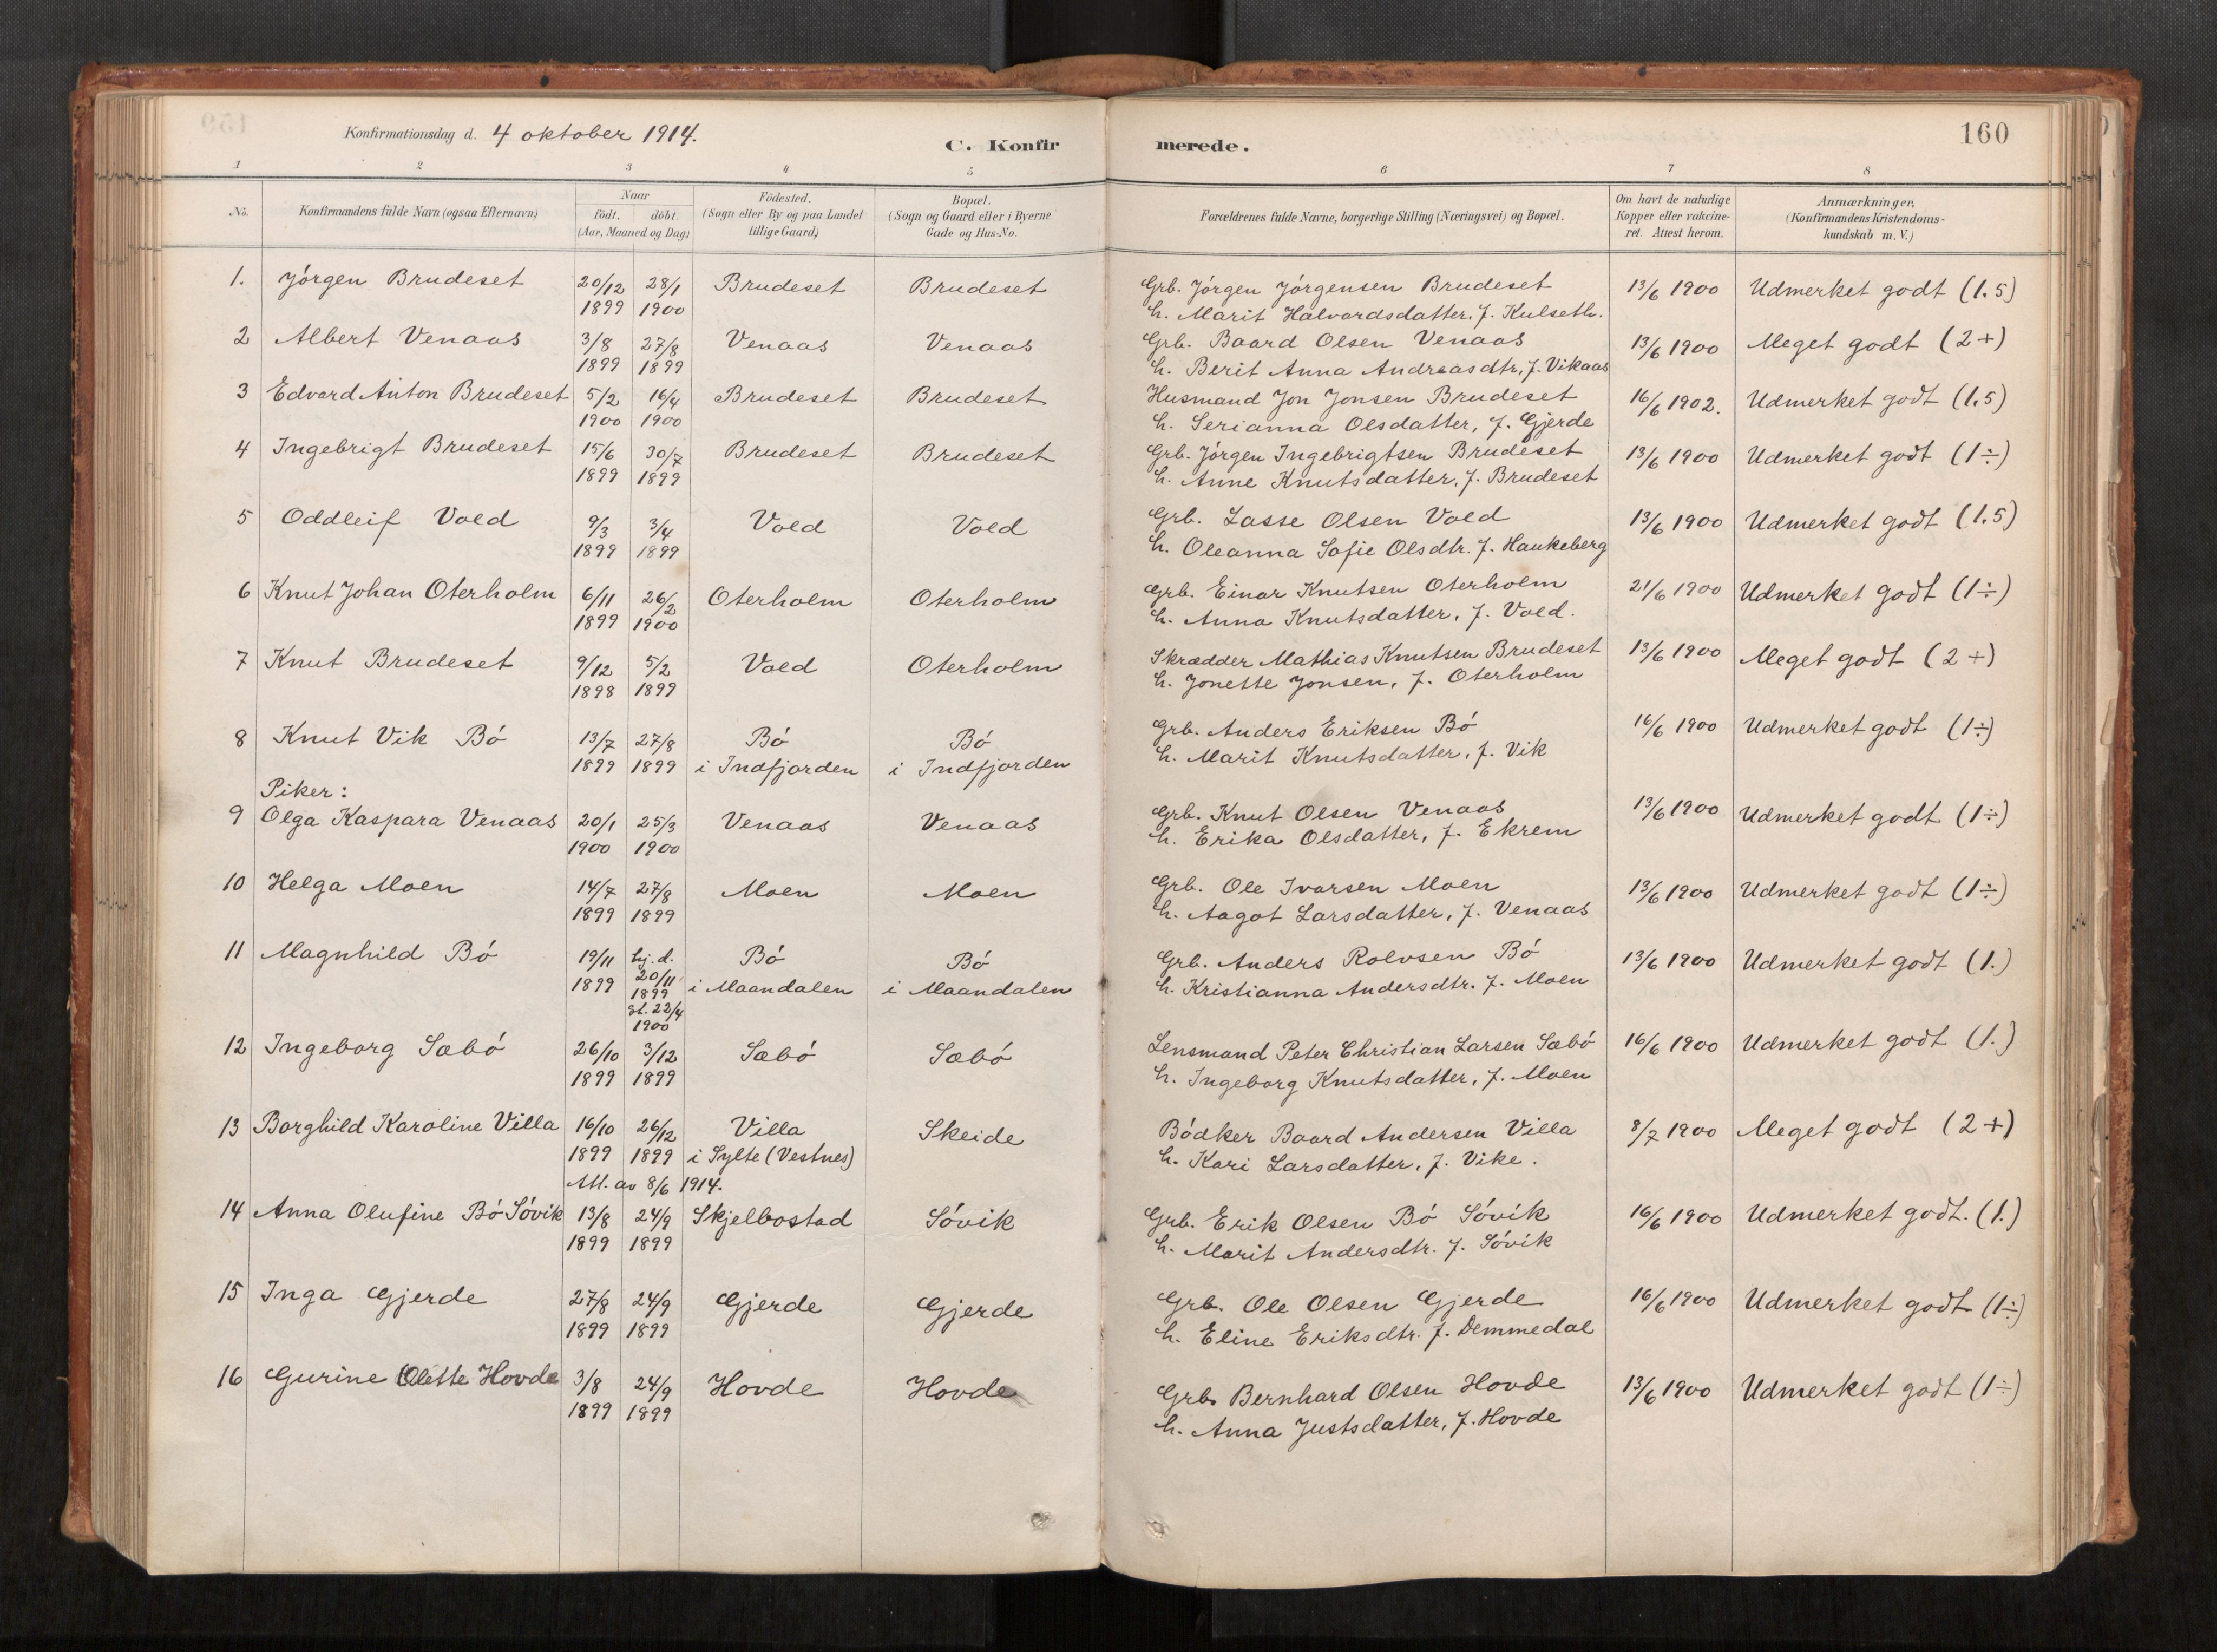 Konfirmationsdag d. 4 oktober 1914.
C. Konfirmerede.
160
1 2 3 4 5 6 7 8
No.
Konfirmandens fulde Navn (ogsaa Efternavn)
Naar
födt. döbt.
(Aar, Maaned og Dag)
Födested.
(Sogn eller By og paa Landet
tillige Gaard)
Bopæl.
(Sogn og Gaard eller i Byerne
Gade og Hus-No.
Forældrenes fulde Navne, borgerlige Stilling (Næringsvei) og Bopæl.
Om havt de naturlige
Kopper eller vakcine-
ret. Attest herom.
Anmærkninger.
(Konfirmandens Kristendoms-
kundskab m. V.)
1. Jörgen Brudeset 20/12 28/1 Brudeset Brudeset Grb. Jörgen Jörgensen Brudeset 13/6 1900 Udmerket godt (1.5)
1899 1900 h. Marit Halvardsdatter, f. Kulseth.
2 Albert Venaas 3/8 27/8 Venaas Venaas Grb. Baard Olsen Venaas 13/6 1900 Meget godt (2+)
1899 1899 h. Berit Anna Andreasdtr, f. Vikaas
3 Edvard Anton Brudeset 5/2 16/4 Brudeset Brudeset Husmand Jon Jonsen Brudeset 16/6 1902. Udmerket godt (1.5)
1900 1900 h. Serianna Olsdatter, f. Gjerde
4 Ingebrigt Brudeset 15/6 30/7 Brudeset Brudeset Grb. Jörgen Ingebrigtsen Brudeset 13/6 1900 Udmerket godt (1÷)
1899 1899 h. Anne Knutsdatter, f. Brudeset
5 Oddleif Vold 9/3 3/4 Vold Vold Grb. Lasse Olsen Vold 13/6 1900 Udmerket godt (1.5)
1899 1899 h. Oleanna Sofie Olsdtr. f. Haukeberg
6 Knut Johan Oterholm 6/11 26/2 Oterholm Oterholm Grb. Einar Knutsen Oterholm 21/6 1900 Udmerket godt (1÷)
1899 1900 h. Anna Knutsdatter, f. Vold.
7 Knut Brudeset 9/12 5/2 Vold Oterholm Skrædder Mathias Knutsen Brudeset 13/6 1900 Meget godt (2+)
1898 1899 h. Jonette Jonsen, f. Oterholm
8 Knut Vik Bö 13/7 27/8 Bö Bö Grb. Anders Eriksen Bö 16/6 1900 Udmerket godt (1÷)
1899 1899 i Indfjorden i Indfjorden h. Marit Knutsdatter, f. Vik
Piker:
9 Olga Kaspara Venaas 20/1 25/3 Venaas Venaas Grb. Knut Olsen Venaas 13/6 1900 Udmerket godt (1÷)
1900 1900 h. Erika Olsdatter, f. Ekrem
10 Helga Moen 14/7 27/8 Moen Moen Grb. Ole Ivarsen Moen 13/6 1900 Udmerket godt (1÷)
1899 1899 h. Aagot Larsdatter, f. Venaas
11 Magnhild Bö 19/11 hj. d. Bö Bö Grb. Anders Rolvsen Bö 13/6 1900 Udmerket godt (1.)
1899 20/11 1899 i Maandalen i Maandalen h. Kristianna Andersdtr. f. Moen
st. 22/4
1900
12 Ingeborg Sæbö 26/10 3/12 Sæbö Sæbö Lensmand Peter Christian Larsen Sæbö 16/6 1900 Udmerket godt (1.)
1899 1899 h. Ingeborg Knutsdatter, f. Moen
13 Borghild Karoline Villa 16/10 26/12 Villa Skeide Bödker Baard Andersen Villa 8/7 1900 Meget godt (2+)
1899 1899 i Sylte (Vestnes) h. Kari Larsdatter, f. Vike.
Att. av 8/6 1914.
14 Anna Olufine Bö Sövik 13/8 24/9 Skjelbostad Sövik Grb. Erik Olsen Bö Sövik 16/6 1900 Udmerket godt. (1.)
1899 1899 h. Marit Andersdtr. f. Sövik
15 Inga Gjerde 27/8 24/9 Gjerde Gjerde Grb. Ole Olsen Gjerde 16/6 1900 Udmerket godt (1÷)
1899 1899 h. Eline Eriksdtr. f. Demmedal
16 Gurine Olette Hovde 3/8 24/9 Hovde Hovde Grb. Bernhard Olsen Hovde 13/6 1900 Udmerket godt (1÷)
1899 1899 h. Anna Justsdatter, f. Hovde